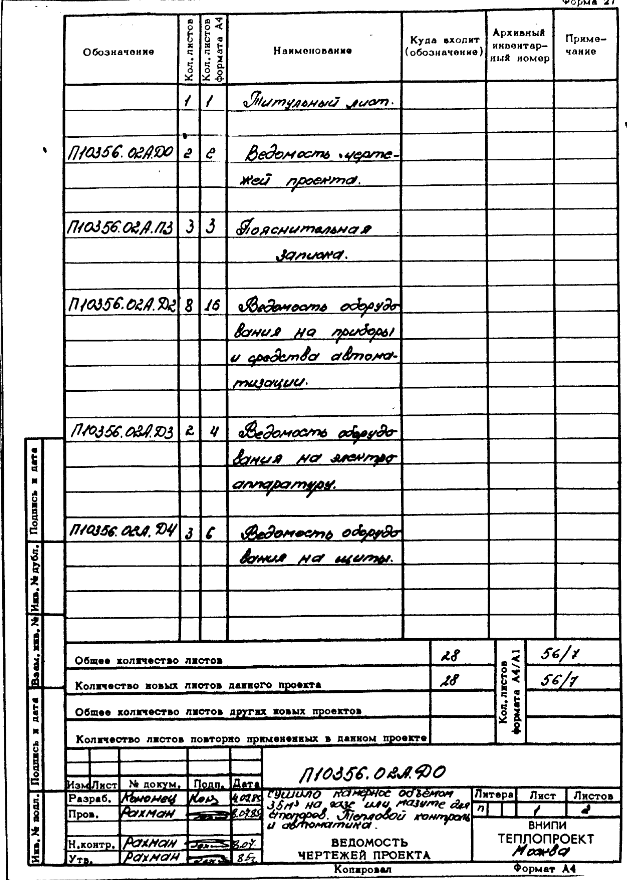 Форма 21
Обозначение Кол. листов Кол. листов формата А4 Наименование Куда входит (обозначение) Архивный инвентарный номер Примечание
1 1 Титульный лист.
П10356.02А.Д0 2 2 Ведомость черте-
жей проекта.
П10356.02А.ПЗ 3 3 Пояснительная
записка.
П10356.02А.Д2 8 16 Ведомость оборудо
вания на приборы
и средства автома-
тизации.
П10356.02А.Д3 2 4 Ведомость оборудо
вания на электро
аппаратуру.
П10356.02А.Д4 3 6 Ведомость оборудо
вания на щиты.
Подпись и дата
Инв. № дубл.
Взам. инв. №
Подпись и дата
Инв. № подл.
Общее количество листов 28 Кол. листов формата А4/А1 56/7
Количество новых листов данного проекта 28 56/7
Общее количество листов других новых проектов
Количество листов повторно примененных в данном проекте
П10356.02А.Д0
Изм Лист № докум. Подп. Дата
Разраб. Кононец
Пров. Рахман
Н.контр. Рахман
Утв. Рахман
Сушило камерное объемом
3,5м³ на газе или мазуте для
стопоров. Тепловой контроль
и автоматика.
ВЕДОМОСТЬ
ЧЕРТЕЖЕЙ ПРОЕКТА
Литера Лист Листов
П 1 2
ВНИПИ
ТЕПЛОПРОЕКТ
Москва
Копировал Формат А4